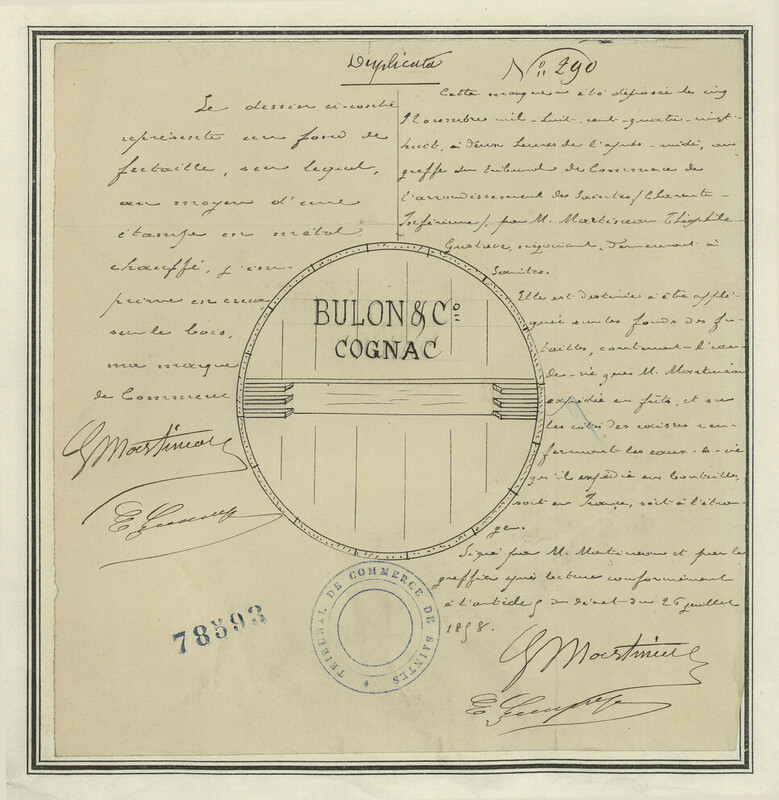 Duplicata
N° 290
Le dessin ci-contre
représente un fond de
futaille, sur lequel,
au moyen d'une
étampe en métal
chauffé, j'im-
prime en creux
sur le bois,
ma marque
de Commerce
G Martineau
Cette marque a été déposée le cinq
9bre mil-huit-cent-quatre-vingt-
huit, à deux heures de l'après-midi, au
greffe du tribunal de Commerce de
l'arrondissement de Saintes (Charente-
Inférieure), par M. Martineau Théophile
Gustave, négociant, demeurant à
Saintes.
Elle est destinée à être appli-
quée sur les fonds des fu-
tailles, contenant l'eau-
de-vie que M. Martineau
expédie en fûts, et sur
les côtés des caisses ren-
fermant les eaux-de-vie
qu'il expédie en bouteilles,
soit en France, soit à l'étran-
ger.
Signé par M. Martineau et par le
greffier après lecture conformément
à l'article 5 du décret du 26 juillet
1858.
G Martineau
BULON & Cº
COGNAC
TRIBUNAL DE COMMERCE DE SAINTES
78593